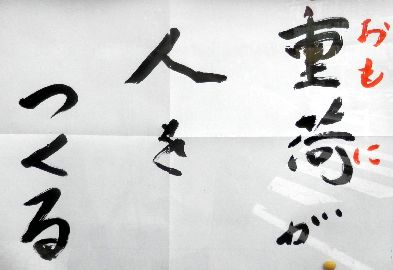 おもに
重荷が
人を
つくる